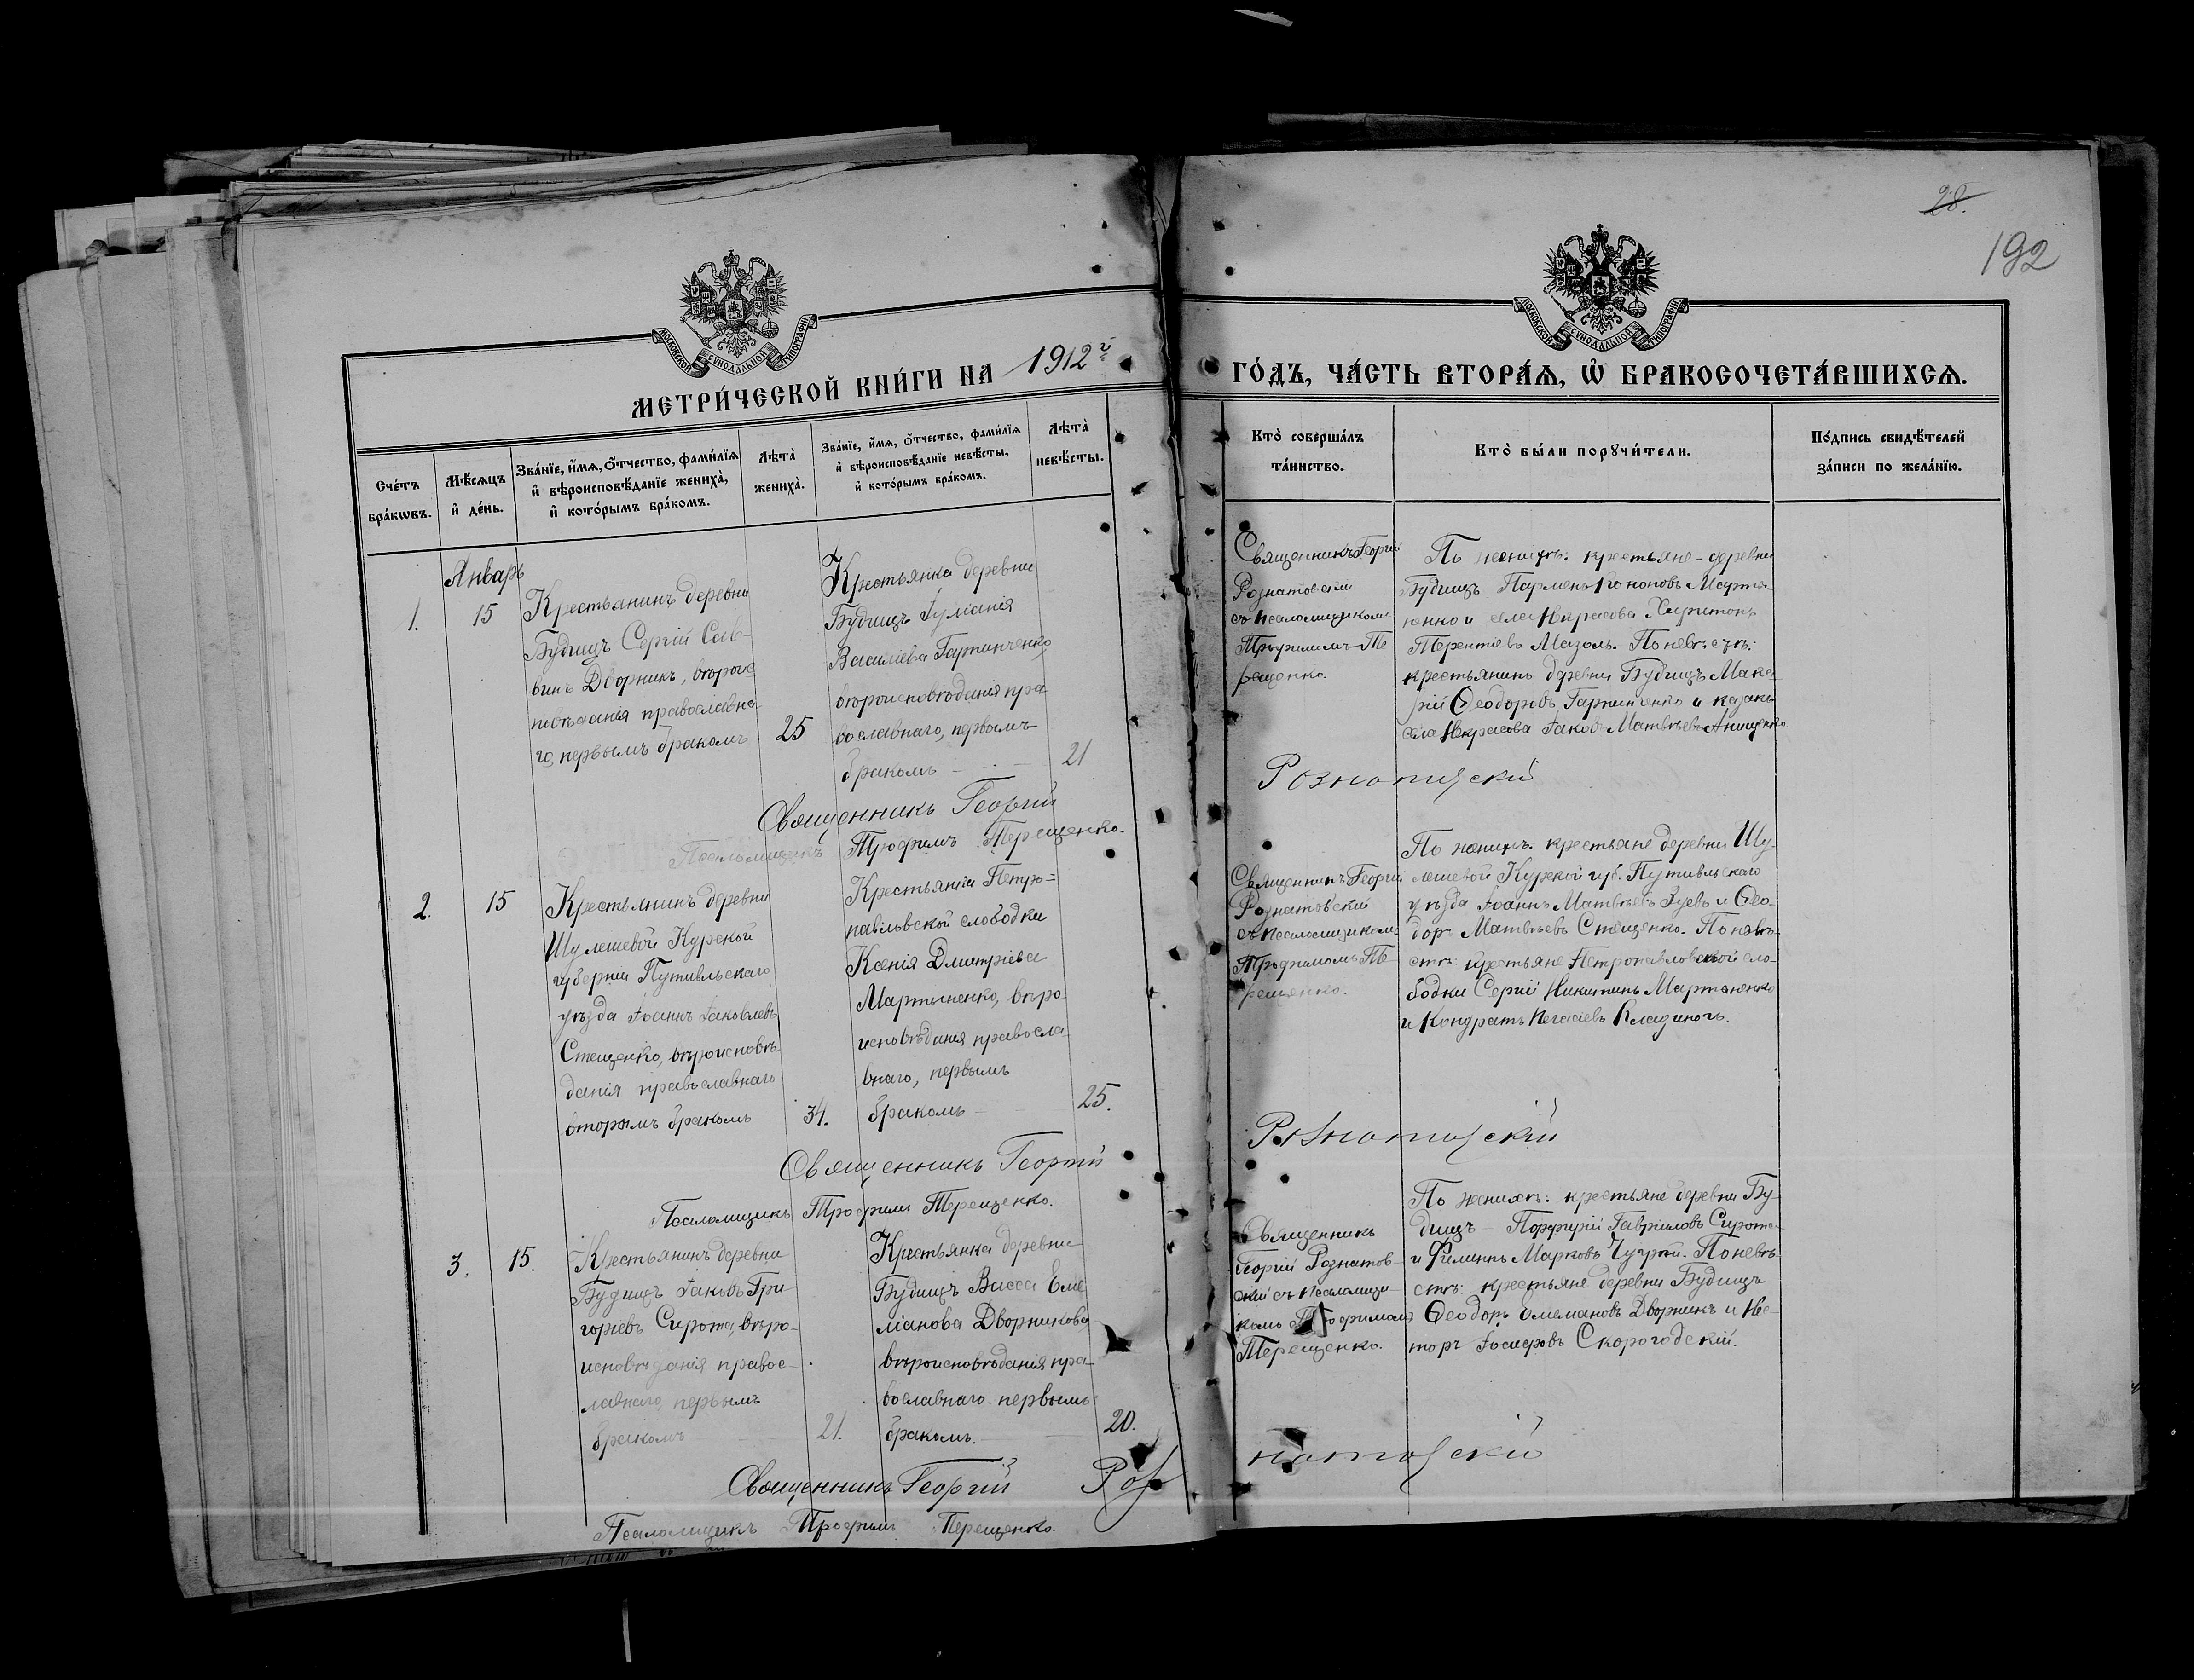 28.
192
МОСКОВСКОЙ СѴНОДАЛЬНОЙ ТИПОГРАФІИ
МОСКОВСКОЙ СѴНОДАЛЬНОЙ ТИПОГРАФІИ
МЕТРИ́ЧЕСКОЙ КНИ́ГИ НА 1912 г.
ГО́ДЪ, ЧА́СТЬ ВТОРА́Ѧ, Ѽ БРАКОСОЧЕТА́ВШИХСѦ.
Сче́тъ
бра́кѡвъ.
Мѣ́сѧцъ
и҆ де́нь.
Зва́нїе, и҆́мѧ, ѻ҆́тчество, фами́лїѧ
и҆ вѣроисповѣ́данїе жениха̀,
и҆ кото́рымъ бра́комъ.
Лѣта̀
жениха̀.
Зва́нїе, и҆́мѧ, ѻ҆́тчество, фами́лїѧ
и҆ вѣроисповѣ́данїе невѣ́сты,
и҆ кото́рымъ бра́комъ.
Лѣта̀
невѣ́сты.
Кто̀ соверша́лъ
та́инство.
Кто̀ бы́ли порꙋчи́тели.
По́дпись свидѣ́телей
за́писи по жела́нїю.
Январь
1.
15
Крестьянинъ деревни
Будищъ Сергій Сав-
винъ Дворникъ, вѣроис
повѣданія православна-
го, первымъ бракомъ
25
Крестьянка деревни
Будищъ Іуліанія
Василіева
вѣроисповѣданія пра
вославнаго, первымъ
бракомъ
21
Священникъ Георгій
Рознатовскій
съ псаломщикомъ
Трофимомъ Те-
рещенко.
По женихѣ: крестьяне деревни
Будищъ Парменъ Кононовъ Марты-
ненко и села Некрасова Харитонъ
Терентіевъ Мазоль. По невѣстѣ:
крестьянинъ деревни Будищъ Мака-
рій Ѳеодоровъ и казакъ
села Некрасова Іаковъ Матвѣевъ Анищенко.
Священникъ Георгій Рознатовскій
Псаломщикъ Трофимъ Терещенко.
2.
15
Крестьянинъ деревни
Шулешевой Курской
губерніи Путивльскаго
уѣзда Іоаннъ Іаковлевъ
Стещенко, вѣроисповѣ-
данія православнаго
вторымъ бракомъ
34.
Крестьянка Петро-
павловской слободки
Ксенія Дмитріева
Мартыненко, вѣро-
исповѣданія правосла-
внаго, первымъ
бракомъ
25.
Священникъ Георгій
Рознатовскій
съ псаломщикомъ
Трофимомъ Те-
рещенко.
По женихѣ: крестьяне деревни Шу-
лешевой Курской губ. Путивльскаго
уѣзда Іоаннъ Матвѣевъ Зуевъ и Ѳео-
доръ Матвѣевъ Стещенко. По невѣ-
стѣ: крестьяне Петропавловской сло-
бодки Сергій Никитинъ Мартыненко
и Кондратъ
Священникъ Георгій Рознатовскій
Псаломщикъ Трофимъ Терещенко.
3.
15.
Крестьянинъ деревни
Будищъ Іаковъ Гри-
горіевъ Сирота, вѣро-
исповѣданія правос-
лавнаго, первымъ
бракомъ
21.
Крестьянка деревни
Будищъ Васса Еме
ліанова Дворникова
вѣроисповѣданія пра-
вославнаго первымъ
бракомъ.
20.
Священникъ
Георгій Рознатов-
скій съ псаломщи-
комъ Трофимомъ
Терещенко.
По женихѣ: крестьяне деревни Бу-
дищъ - Порфирій Гавриловъ Сирота
и Филиппъ Марковъ Чугай. По невѣ-
стѣ: крестьяне деревни Будищъ
Ѳеодоръ Емеліановъ Дворникъ и Нес-
торъ Іосифовъ Скороходскій.
Священникъ Георгій Рознатовскій
Псаломщикъ Трофимъ Терещенко.